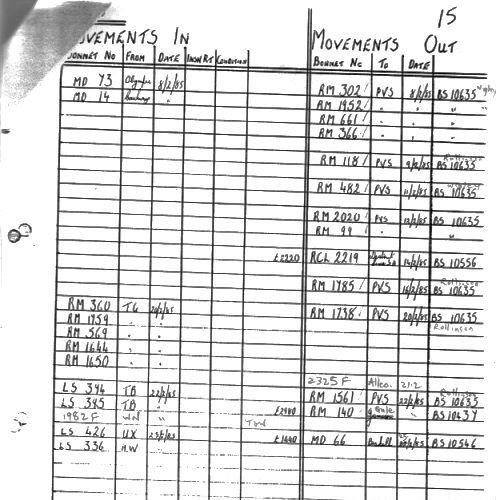 15
MOVEMENTS IN MOVEMENTS OUT
BONNET NO FROM DATE CONDITION BONNET NO TO DATE
MD 73 Olympic 8/2/85 RM 302 PVS 8/2/85 BS 10635
MD 14 " RM 1952 " " "
RM 661 " " "
RM 366 " " "
RM 118 PVS 9/2/85 BS 10635 Rollinson
RM 482 PVS 11/2/85 BS 10635
RM 2020 PVS 13/2/85 BS 10635
RM 99 " "
£2220 RCL 2219 14/2/85 BS 10556
RM 1785 PVS 16/2/85 BS 10635 Rollinson
RM 360 TG 20/2/85 RM 1738 PVS 20/2/85 BS 10635
RM 1759 " " Rollinson
RM 569 " "
RM 1644 " "
RM 1650 " "
2325 F 21.2
LS 394 TB 22/2/85 RM 1561 PVS 22/2/85 BS 10635 Rollinson
LS 385 TB " £2480 RM 140 BS 10437
1982 F "
LS 426 UX 25/2/85 £1440 MD 66 BS 10546
LS 336 HW